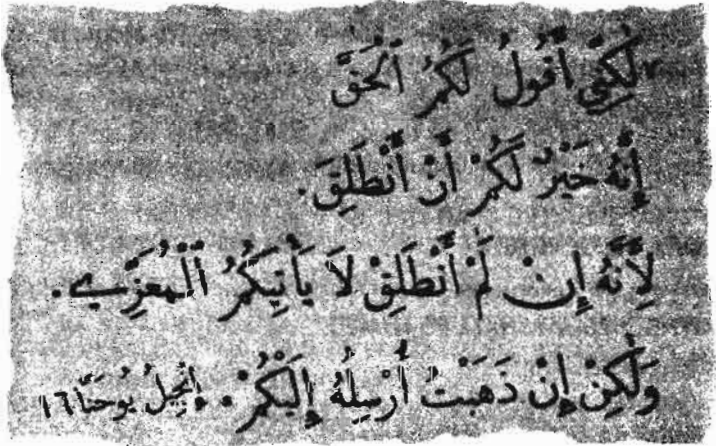 "لَكِنِّي أَقُولُ لَكُمُ ٱلْحَقَّ
إِنَّهُ خَيْرٌ لَكُمْ أَنْ أَنْطَلِقَ.
لِأَنَّهُ إِنْ لَمْ أَنْطَلِقْ لَا يَأْتِيكُمُ ٱلْمُعَزِّي.
وَلَكِنْ إِنْ ذَهَبْتُ أُرْسِلُهُ إِلَيْكُمْ. إِنْجِيلُ يُوحَنَّا ١٦